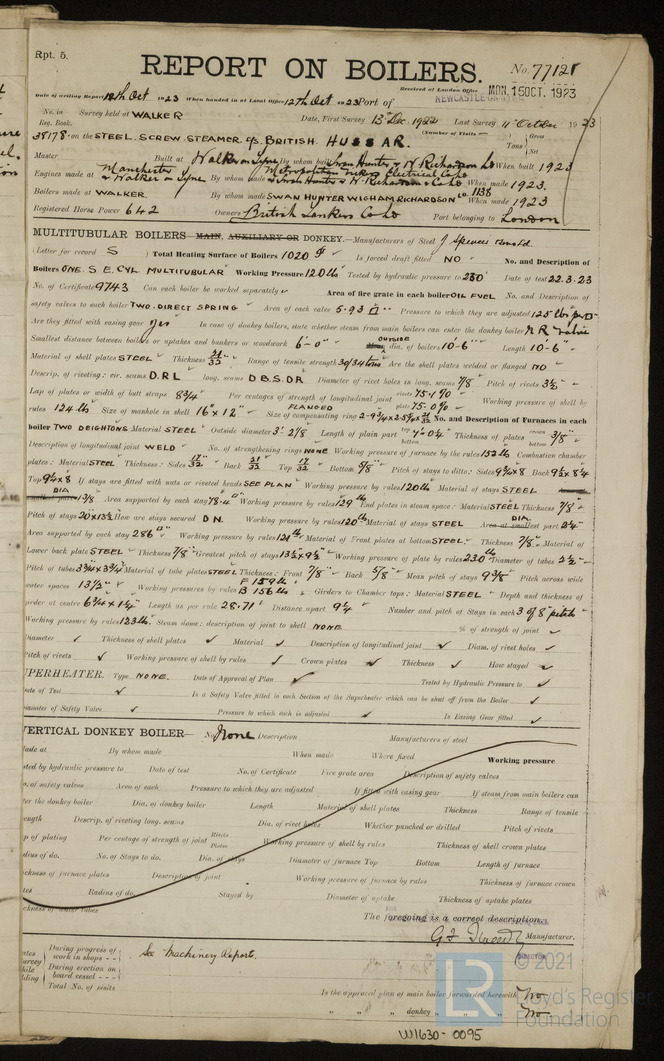 Rpt. 5.
REPORT ON BOILERS.
No. 77121
Received at London Office MON. 15 OCT. 1923
NEWCASTLE ON
Date of writing Report 12th Oct 1923 When handed in at Local Office 12th Oct 1923 Port of
No. in Survey held at WALKER Date, First Survey 13 Dec 1922 Last Survey 11 October 1923
Reg. Book. (Number of Visits
38178 on the STEEL SCREW STEAMER S/S BRITISH HUSSAR. Tons Gross Net
Master Built at Walker on Tyne By whom built Swan Hunter & W Richardson Ld When built 1923
Engines made at Manchester & Walker on Tyne By whom made Metropolitan Vickers Electrical Co Ld & Swan Hunter & W. Richardson & Co Ld When made 1923.
Boilers made at WALKER. By whom made SWAN HUNTER WIGHAM RICHARDSON Co. 1138 When made 1923
Registered Horse Power 642 Owners British Tankers Co Ld Port belonging to London
MULTITUBULAR BOILERS MAIN, AUXILIARY OR DONKEY.—Manufacturers of Steel J Spencer & Sons Ld
(Letter for record S) Total Heating Surface of Boilers 1020 Is forced draft fitted NO No. and Description of
Boilers ONE. S. E. CYL MULTITUBULAR Working Pressure 120 lb Tested by hydraulic pressure to 230 Date of test 22.3.23
No. of Certificate 9743 Can each boiler be worked separately Area of fire grate in each boiler OIL FUEL No. and Description of
safety valves to each boiler TWO. DIRECT SPRING Area of each valve 5.93 Pressure to which they are adjusted 125 lbs
Are they fitted with easing gear Yes In case of donkey boilers, state whether steam from main boilers can enter the donkey boiler N.R. Valve
Smallest distance between boilers or uptakes and bunkers or woodwork 6'-0" OUTSIDE dia. of boilers 10'-6" Length 10'-6"
Material of shell plates STEEL Thickness 21/32 Range of tensile strength 30/34 tons Are the shell plates welded or flanged NO
Descrip. of riveting: cir. seams D.R.L long. seams D.B.S.DR Diameter of rivet holes in long. seams 7/8 Pitch of rivets 3½
Lap of plates or width of butt straps 8¾ Per centages of strength of longitudinal joint rivets 75.1% plate 75.0% Working pressure of shell by
rules 124 lb Size of manhole in shell 16" x 12" Size of compensating ring FLANGED No. and Description of Furnaces in each
boiler TWO DEIGHTONS Material STEEL Outside diameter 3'-2⅞ Length of plain part top bottom Thickness of plates crown bottom 3/8"
Description of longitudinal joint WELD No. of strengthening rings NONE Working pressure of furnace by the rules 152 lb Combustion chamber
plates: Material STEEL Thickness: Sides 17/32 Back 21/32 Top 17/32 Bottom 5/8" Pitch of stays to ditto: Sides 9¾ x 8 Back 9½ x 8¾
Top 9¼ x 8 If stays are fitted with nuts or riveted heads SEE PLAN Working pressure by rules 120 lb Material of stays STEEL
DIA 1 3/8 Area supported by each stay 78.4" Working pressure by rules 129 lb End plates in steam space: Material STEEL Thickness 7/8"
Pitch of stays 20 x 13½ How are stays secured D N. Working pressure by rules 120 lb Material of stays STEEL DIA. smallest part 2¼"
Area supported by each stay 286 Working pressure by rules 121 lb Material of Front plates at bottom STEEL Thickness 7/8" Material of
Lower back plate STEEL Thickness 7/8" Greatest pitch of stays 13½ x 9½ Working pressure of plate by rules 230 lb Diameter of tubes 2½"
Pitch of tubes 3¾ x 3¾ Material of tube plates STEEL Thickness: Front 7/8" Back 5/8" Mean pitch of stays 9 3/8 Pitch across wide
water spaces 13½" Working pressures by rules F 159 lb B 156 lb Girders to Chamber tops: Material STEEL Depth and thickness of
girder at centre 6¾ x 1½" Length as per rule 28.71 Distance apart 9¼ Number and pitch of Stays in each 3 of 8" pitch
Working pressure by rules 123 lb. Steam dome: description of joint to shell NONE % of strength of joint
Diameter Thickness of shell plates Material Description of longitudinal joint Diam. of rivet holes
Pitch of rivets Working pressure of shell by rules Crown plates Thickness How stayed
UPERHEATER. Type NONE. Date of Approval of Plan Tested by Hydraulic Pressure to
Date of Test Is a Safety Valve fitted to each Section of the Superheater which can be shut off from the Boiler
Diameter of Safety Valve Pressure to which each is adjusted Is Easing Gear fitted
VERTICAL DONKEY BOILER— No. None Description Manufacturers of steel
Made at By whom made When made Where fixed Working pressure
ted by hydraulic pressure to Date of test No. of Certificate Fire grate area Description of safety valves
of safety valves Area of each Pressure to which they are adjusted If fitted with easing gear If steam from main boilers can
er the donkey boiler Dia. of donkey boiler Length Material of shell plates Thickness Range of tensile
ength Descrip. of riveting long. seams Dia. of rivet holes Whether punched or drilled Pitch of rivets
p of plating Per centage of strength of joint Rivets Plates Working pressure of shell by rules Thickness of shell crown plates
dius of do. No. of Stays to do. Dia. of stays Diameter of furnace Top Bottom Length of furnace
ckness of furnace plates Description of joint Working pressure of furnace by rules Thickness of furnace crown
tes Radius of do. Stayed by Diameter of uptake Thickness of uptake plates
ckness of water tubes
The foregoing is a correct description,
Manufacturer.
DIRECTOR
During progress of work in shops - -
During erection on board vessel - - -
Total No. of visits
See Machinery Report.
Is the approved plan of main boiler forwarded herewith No
" " " donkey " " " No
© 2021
LR
Lloyd's Register
Foundation
W1630-0095